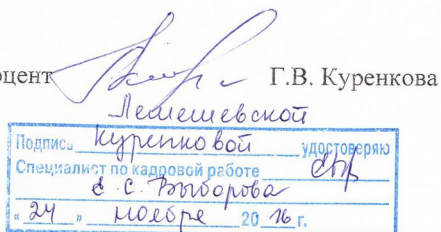 оцент Г.В. Куренкова
Лемешевской
Подпись Куренковой удостоверяю
Специалист по кадровой работе
Е.С. Выборова
« 24 » ноября 20 16 г.